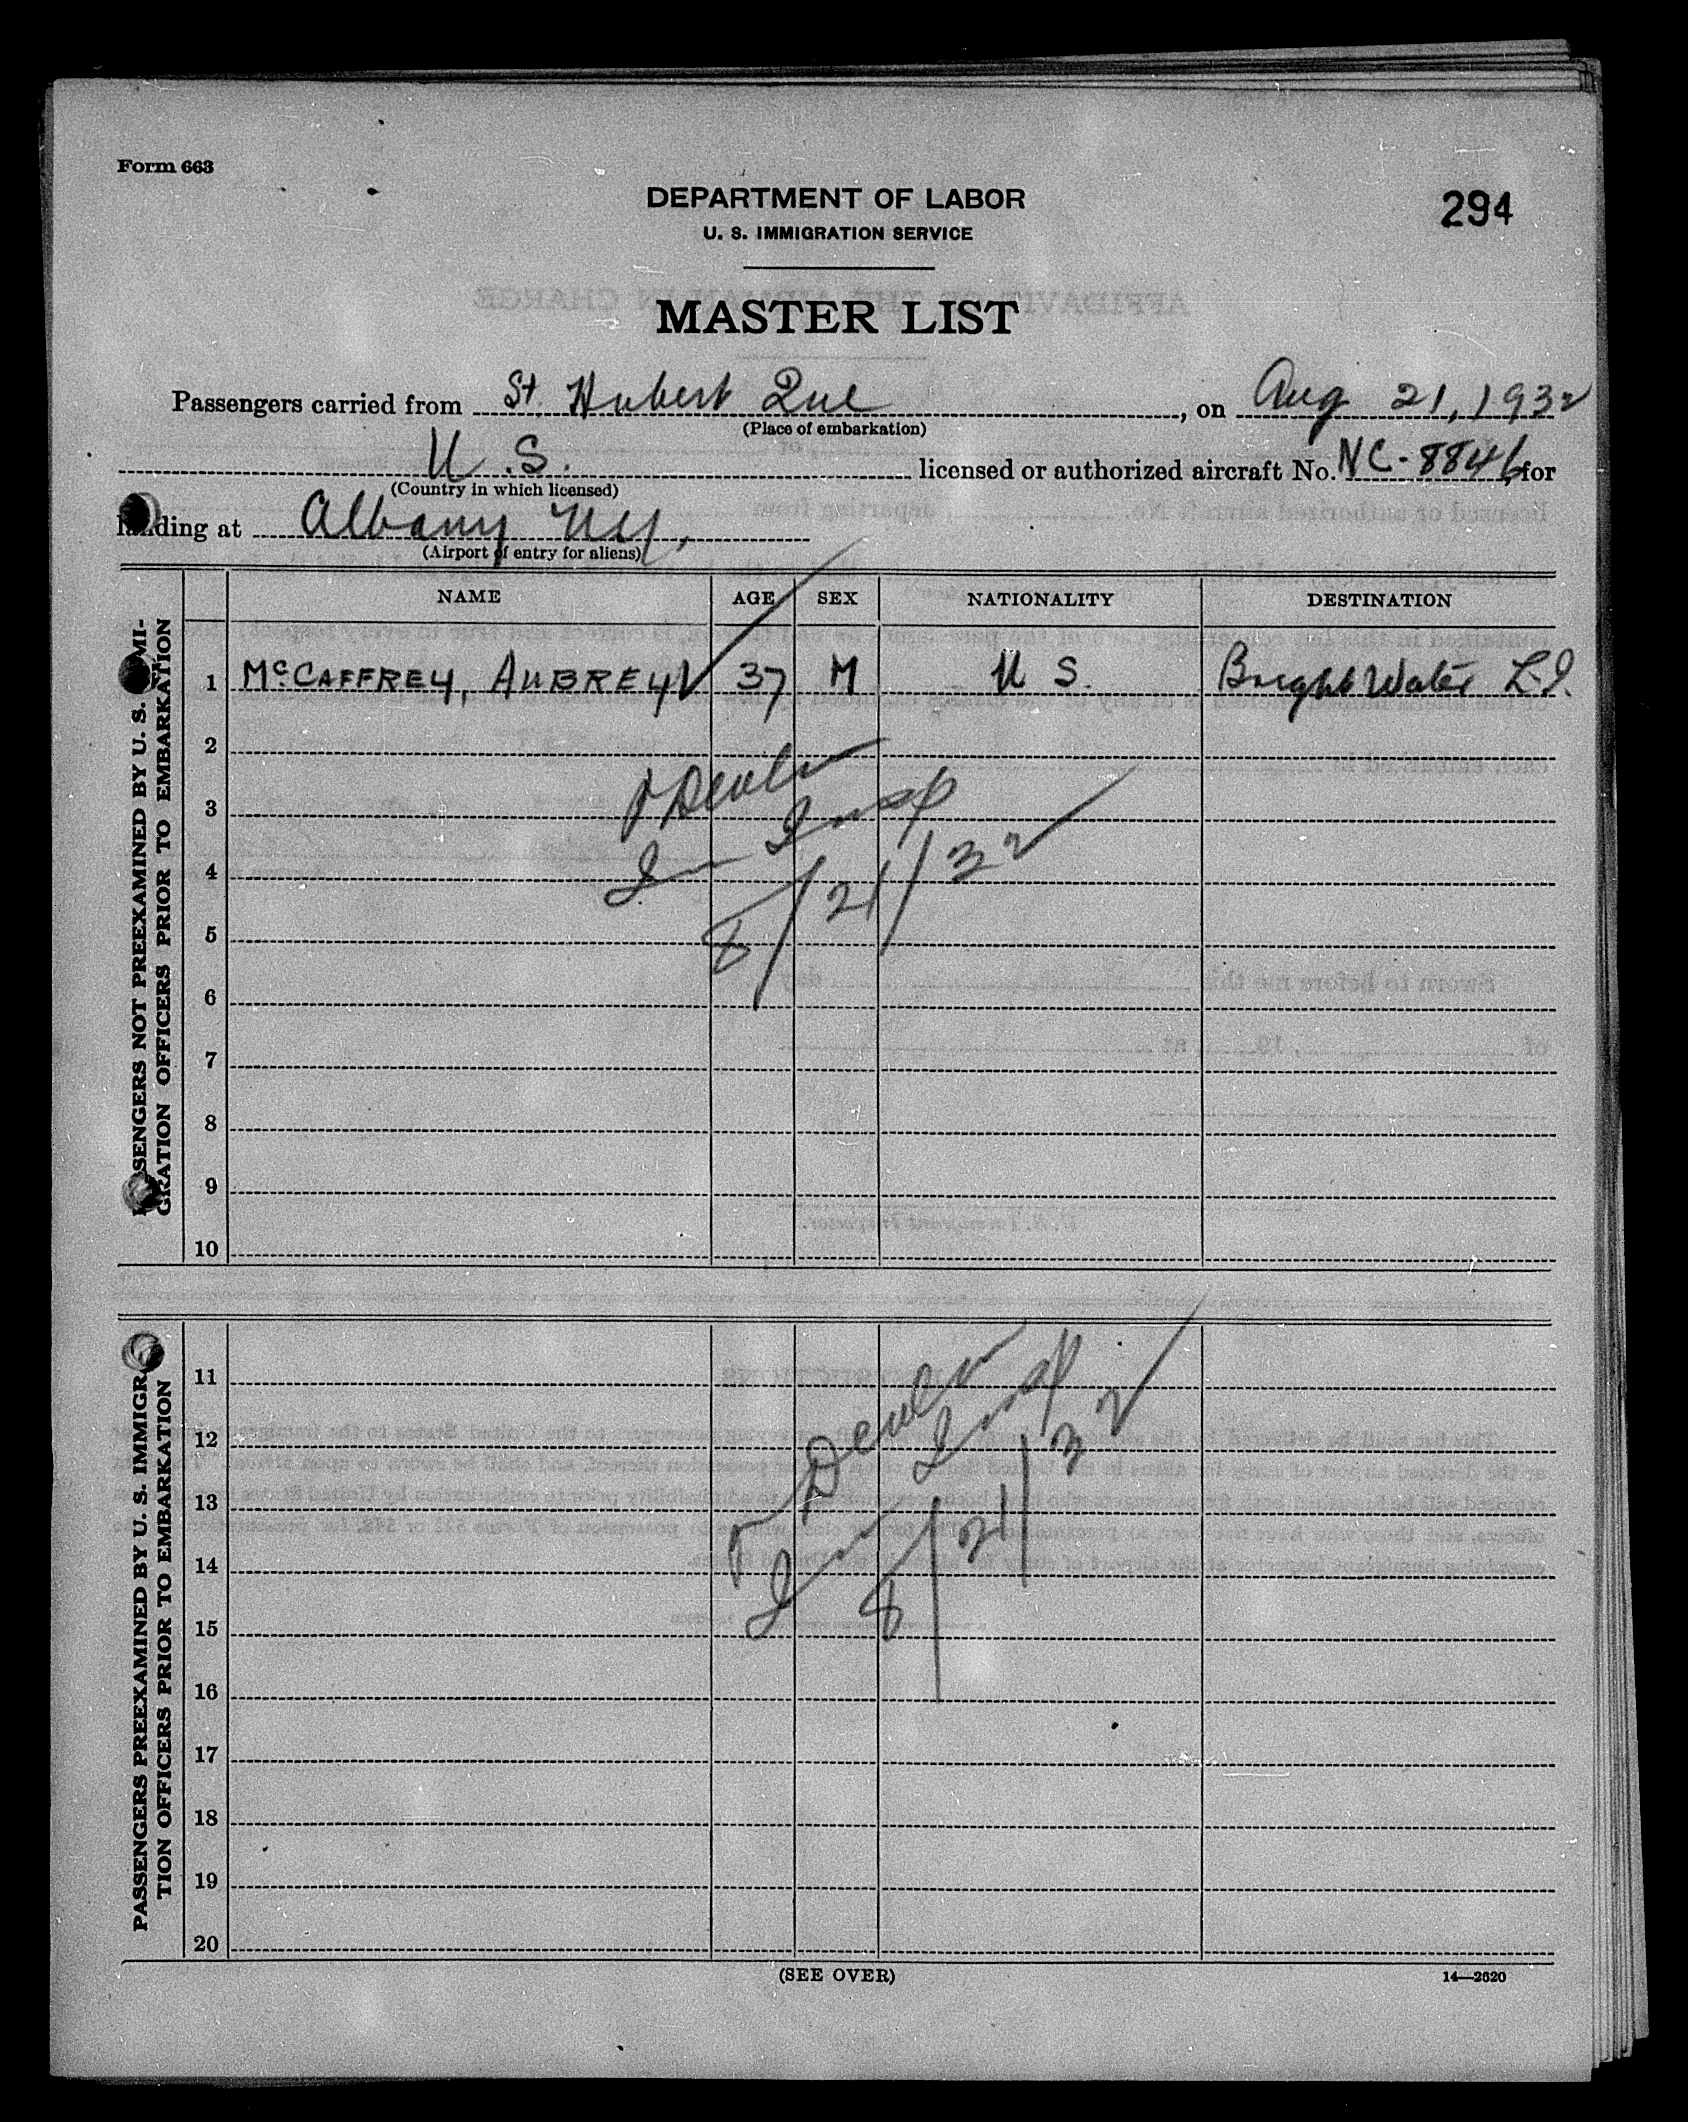 Form 663
DEPARTMENT OF LABOR
294
U. S. IMMIGRATION SERVICE
MASTER LIST
Passengers carried from St. Hubert Que, on Aug 21, 1932
(Place of embarkation)
U.S. licensed or authorized aircraft No. NC-8846, for
(Country in which licensed)
landing at Albany NY,
(Airport of entry for aliens)
PASSENGERS NOT PREEXAMINED BY U. S. IMMI-
GRATION OFFICERS PRIOR TO EMBARKATION
NAME AGE SEX NATIONALITY DESTINATION
1 McCAFFREY, AUBREY 37 M U S. BrightWater L.I.
2
3
4
5
6
7
8
9
10
Imm Insp
8/21/32
PASSENGERS PREEXAMINED BY U. S. IMMIGRA-
TION OFFICERS PRIOR TO EMBARKATION
11
12
13
14
15
16
17
18
19
20
Imm Insp
8/21/32
(SEE OVER)
14—2620